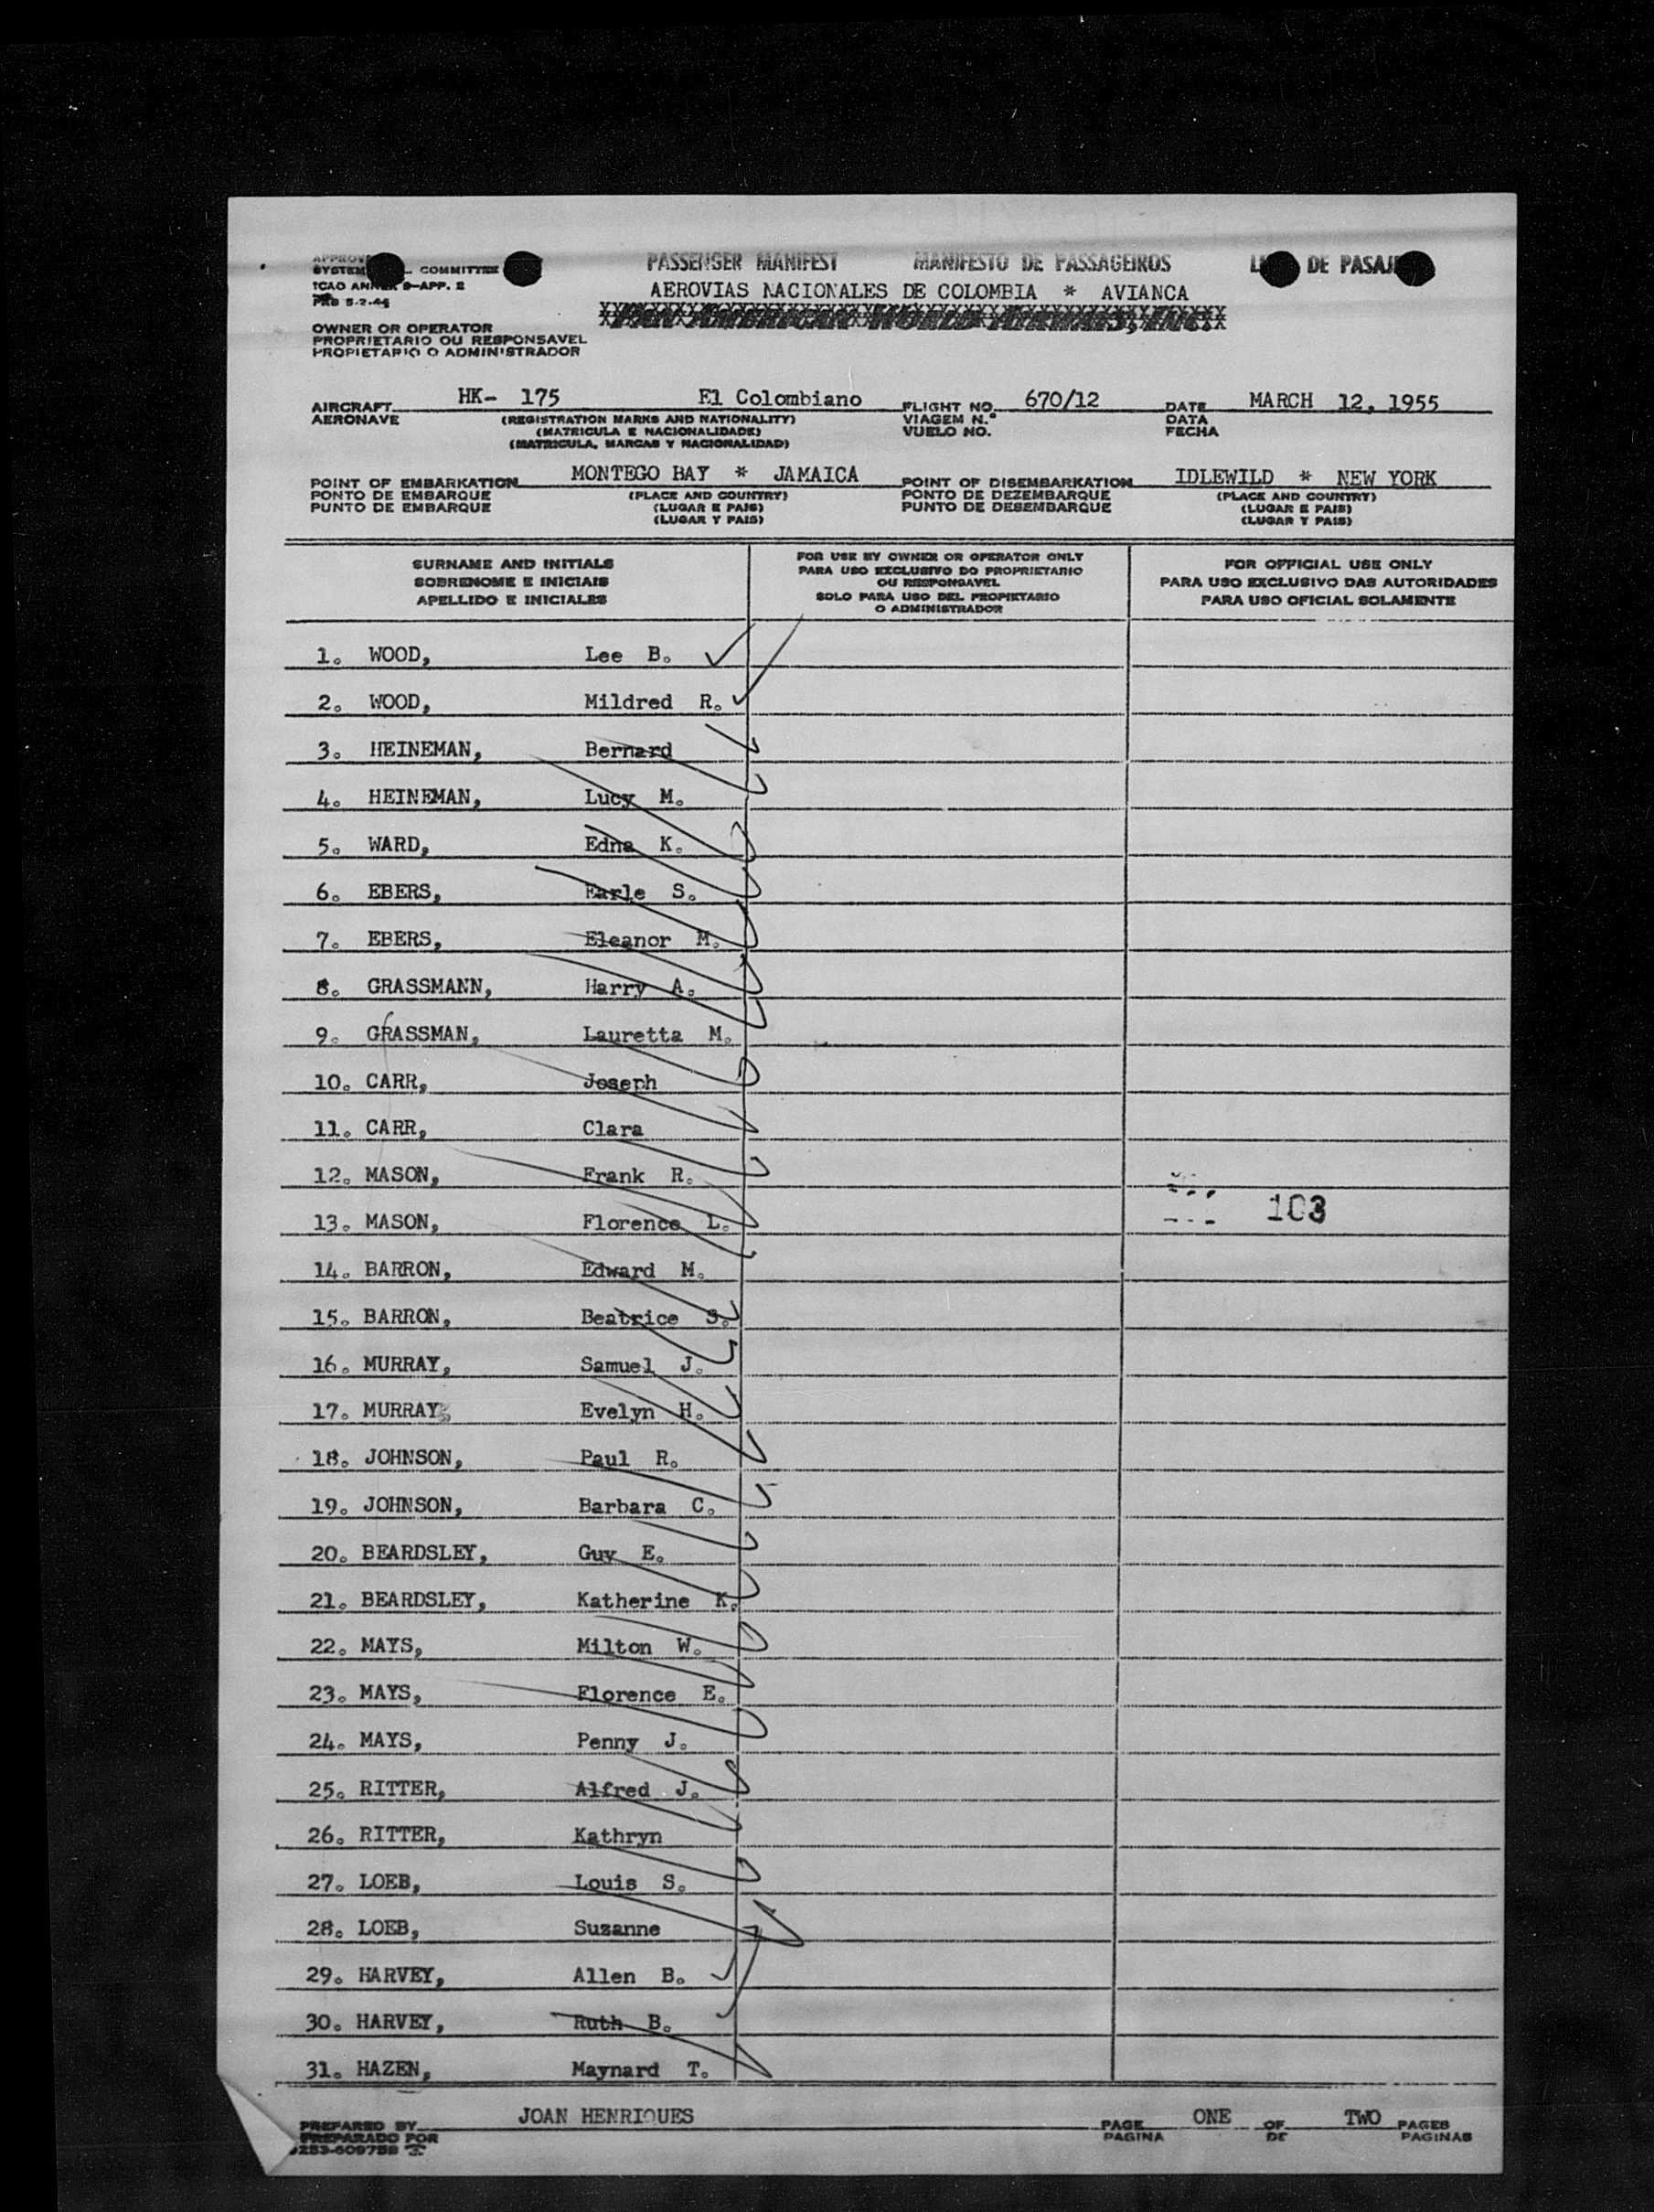 PASSENGER MANIFEST MANIFESTO DE PASSAGEIROS DE PASAJ
SYSTEM COMMITTEE
ICAO ANNEX 9-APP. 2
AEROVIAS NACIONALES DE COLOMBIA * AVIANCA
PAN AMERICAN WORLD AIRWAYS, INC.
OWNER OR OPERATOR
PROPRIETARIO OU RESPONSAVEL
PROPIETARIO O ADMINISTRADOR
AIRCRAFT HK- 175 El Colombiano FLIGHT NO. 670/12 DATE MARCH 12, 1955
AERONAVE (REGISTRATION MARKS AND NATIONALITY) VIAGEM N.º DATA
(MATRICULA E NACIONALIDADE) VUELO NO. FECHA
(MATRICULA, MARCAS Y NACIONALIDAD)
POINT OF EMBARKATION MONTEGO BAY * JAMAICA POINT OF DISEMBARKATION IDLEWILD * NEW YORK
PONTO DE EMBARQUE (PLACE AND COUNTRY) PONTO DE DEZEMBARQUE (PLACE AND COUNTRY)
PUNTO DE EMBARQUE (LUGAR E PAIS) PUNTO DE DESEMBARQUE (LUGAR E PAIS)
(LUGAR Y PAIS) (LUGAR Y PAIS)
SURNAME AND INITIALS
SOBRENOME E INICIAIS
APELLIDO E INICIALES
FOR USE BY OWNER OR OPERATOR ONLY
PARA USO EXCLUSIVO DO PROPRIETARIO
OU RESPONSAVEL
SOLO PARA USO DEL PROPIETARIO
O ADMINISTRADOR
FOR OFFICIAL USE ONLY
PARA USO EXCLUSIVO DAS AUTORIDADES
PARA USO OFICIAL SOLAMENTE
1. WOOD, Lee B.
2. WOOD, Mildred R.
3. HEINEMAN, Bernard
4. HEINEMAN, Lucy M.
5. WARD, Edna K.
6. EBERS, Earle S.
7. EBERS, Eleanor M.
8. GRASSMANN, Harry A.
9. GRASSMAN, Lauretta M.
10. CARR, Joseph
11. CARR, Clara
12. MASON, Frank R.
103
13. MASON, Florence L.
14. BARRON, Edward M.
15. BARRON, Beatrice S.
16. MURRAY, Samuel J.
17. MURRAY, Evelyn H.
18. JOHNSON, Paul R.
19. JOHNSON, Barbara C.
20. BEARDSLEY, Guy E.
21. BEARDSLEY, Katherine K.
22. MAYS, Milton W.
23. MAYS, Florence E.
24. MAYS, Penny J.
25. RITTER, Alfred J.
26. RITTER, Kathryn
27. LOEB, Louis S.
28. LOEB, Suzanne
29. HARVEY, Allen B.
30. HARVEY, Ruth B.
31. HAZEN, Maynard T.
PREPARED BY JOAN HENRIQUES PAGE ONE OF TWO PAGES
PREPARADO POR PAGINA DE PAGINAS